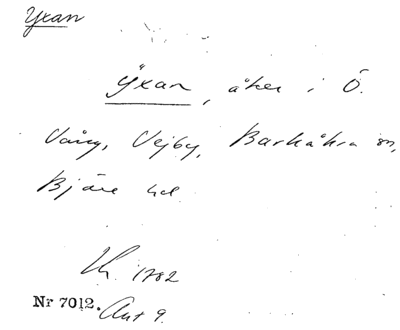 Yxan
Yxan, åker i Ö.
Vång, Vejby, Barkåkra sn,
Bjäre hd.
1782
Nr 7012. Akt 9.